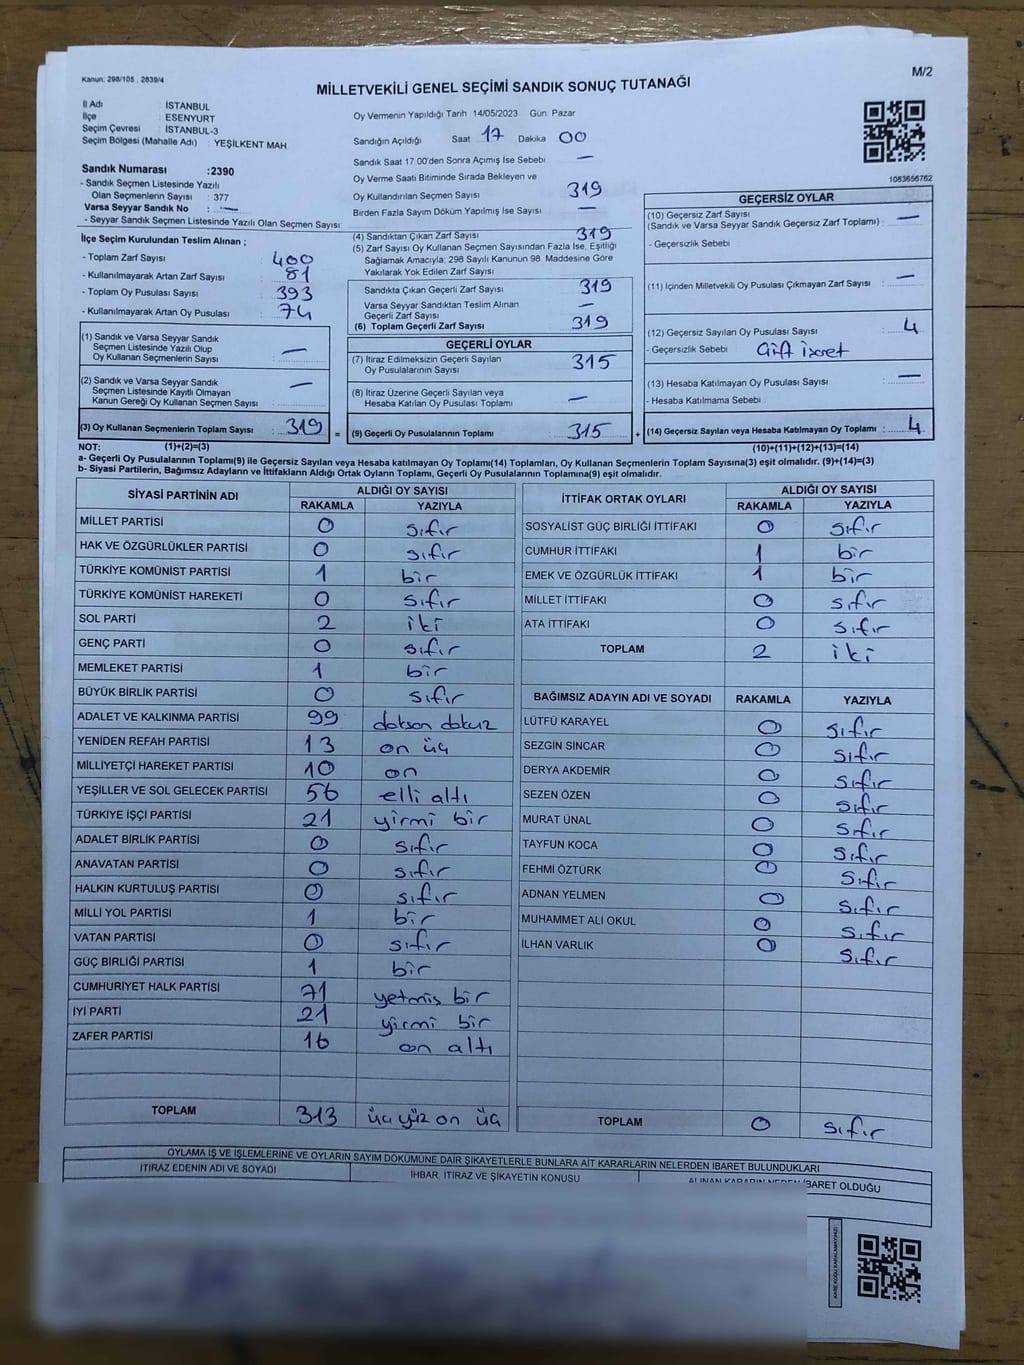 Kanun: 298/105 , 2839/4
M/2
MİLLETVEKİLİ GENEL SEÇİMİ SANDIK SONUÇ TUTANAĞI
İl Adı : İSTANBUL
İlçe : ESENYURT
Seçim Çevresi : İSTANBUL-3
Seçim Bölgesi (Mahalle Adı) : YEŞİLKENT MAH
Sandık Numarası :2390
- Sandık Seçmen Listesinde Yazılı
Olan Seçmenlerin Sayısı : 377
Varsa Seyyar Sandık No : —
- Seyyar Sandık Seçmen Listesinde Yazılı Olan Seçmen Sayısı:
Oy Vermenin Yapıldığı Tarih 14/05/2023 Gün: Pazar
Sandığın Açıldığı Saat 17 Dakika 00
Sandık Saat 17:00'den Sonra Açımış İse Sebebi —
Oy Verme Saati Bitiminde Sırada Bekleyen ve
Oy Kullandırılan Seçmen Sayısı 319
Birden Fazla Sayım Döküm Yapılmış İse Sayısı —
1083656762
İlçe Seçim Kurulundan Teslim Alınan ;
- Toplam Zarf Sayısı : 400
- Kullanılmayarak Artan Zarf Sayısı : 81
- Toplam Oy Pusulası Sayısı : 393
- Kullanılmayarak Artan Oy Pusulası : 74
(1) Sandık ve Varsa Seyyar Sandık
Seçmen Listesinde Yazılı Olup
Oy Kullanan Seçmenlerin Sayısı : —
(2) Sandık ve Varsa Seyyar Sandık
Seçmen Listesinde Kayıtlı Olmayan
Kanun Gereği Oy Kullanan Seçmen Sayısı : —
(3) Oy Kullanan Seçmenlerin Toplam Sayısı : 319
(4) Sandıktan Çıkan Zarf Sayısı 319
(5) Zarf Sayısı Oy Kullanan Seçmen Sayısından Fazla İse, Eşitliği
Sağlamak Amacıyla; 298 Sayılı Kanunun 98. Maddesine Göre
Yakılarak Yok Edilen Zarf Sayısı
Sandıkta Çıkan Geçerli Zarf Sayısı 319
Varsa Seyyar Sandıktan Teslim Alınan
Geçerli Zarf Sayısı —
(6) Toplam Geçerli Zarf Sayısı 319
GEÇERLİ OYLAR
(7) İtiraz Edilmeksizin Geçerli Sayılan
Oy Pusulalarının Sayısı 315
(8) İtiraz Üzerine Geçerli Sayılan veya
Hesaba Katılan Oy Pusulası Toplamı —
= (9) Geçerli Oy Pusulalarının Toplamı 315 +
GEÇERSİZ OYLAR
(10) Geçersiz Zarf Sayısı
(Sandık ve Varsa Seyyar Sandık Geçersiz Zarf Toplamı) : —
- Geçersizlik Sebebi
(11) İçinden Milletvekili Oy Pusulası Çıkmayan Zarf Sayısı : —
(12) Geçersiz Sayılan Oy Pusulası Sayısı : 4
- Geçersizlik Sebebi : Çift işaret
(13) Hesaba Katılmayan Oy Pusulası Sayısı : —
- Hesaba Katılmama Sebebi :
(14) Geçersiz Sayılan veya Hesaba Katılmayan Oy Toplamı : 4
NOT: (1)+(2)=(3) (10)+(11)+(12)+(13)=(14)
a- Geçerli Oy Pusulalarının Toplamı(9) ile Geçersiz Sayılan veya Hesaba katılmayan Oy Toplamı(14) Toplamları, Oy Kullanan Seçmenlerin Toplam Sayısına(3) eşit olmalıdır. (9)+(14)=(3)
b- Siyasi Partilerin, Bağımsız Adayların ve İttifakların Aldığı Ortak Oyların Toplamı, Geçerli Oy Pusulalarının Toplamına(9) eşit olmalıdır.
SİYASİ PARTİNİN ADI ALDIĞI OY SAYISI
RAKAMLA YAZIYLA
MİLLET PARTİSİ 0 sıfır
HAK VE ÖZGÜRLÜKLER PARTİSİ 0 sıfır
TÜRKİYE KOMÜNİST PARTİSİ 1 bir
TÜRKİYE KOMÜNİST HAREKETİ 0 sıfır
SOL PARTİ 2 iki
GENÇ PARTİ 0 sıfır
MEMLEKET PARTİSİ 1 bir
BÜYÜK BİRLİK PARTİSİ 0 sıfır
ADALET VE KALKINMA PARTİSİ 99 doksan dokuz
YENİDEN REFAH PARTİSİ 13 on üç
MİLLİYETÇİ HAREKET PARTİSİ 10 on
YEŞİLLER VE SOL GELECEK PARTİSİ 56 elli altı
TÜRKİYE İŞÇİ PARTİSİ 21 yirmi bir
ADALET BİRLİK PARTİSİ 0 sıfır
ANAVATAN PARTİSİ 0 sıfır
HALKIN KURTULUŞ PARTİSİ 0 sıfır
MİLLİ YOL PARTİSİ 1 bir
VATAN PARTİSİ 0 sıfır
GÜÇ BİRLİĞİ PARTİSİ 1 bir
CUMHURİYET HALK PARTİSİ 71 yetmiş bir
İYİ PARTİ 21 yirmi bir
ZAFER PARTİSİ 16 on altı
TOPLAM 313 üç yüz on üç
İTTİFAK ORTAK OYLARI ALDIĞI OY SAYISI
RAKAMLA YAZIYLA
SOSYALİST GÜÇ BİRLİĞİ İTTİFAKI 0 sıfır
CUMHUR İTTİFAKI 1 bir
EMEK VE ÖZGÜRLÜK İTTİFAKI 1 bir
MİLLET İTTİFAKI 0 sıfır
ATA İTTİFAKI 0 sıfır
TOPLAM 2 iki
BAĞIMSIZ ADAYIN ADI VE SOYADI RAKAMLA YAZIYLA
LÜTFÜ KARAYEL 0 sıfır
SEZGİN SİNCAR 0 sıfır
DERYA AKDEMİR 0 sıfır
SEZEN ÖZEN 0 sıfır
MURAT ÜNAL 0 sıfır
TAYFUN KOCA 0 sıfır
FEHMİ ÖZTÜRK 0 sıfır
ADNAN YELMEN 0 sıfır
MUHAMMET ALİ OKUL 0 sıfır
İLHAN VARLIK 0 sıfır
TOPLAM 0 sıfır
OYLAMA İŞ VE İŞLEMLERİNE VE OYLARIN SAYIM DÖKÜMÜNE DAİR ŞİKAYETLERLE BUNLARA AİT KARARLARIN NELERDEN İBARET BULUNDUKLARI
İTİRAZ EDENİN ADI VE SOYADI İHBAR, İTİRAZ VE ŞİKAYETİN KONUSU ALINAN KARARIN NEDEN İBARET OLDUĞU
KARE KODU KARALAMAYINIZ!